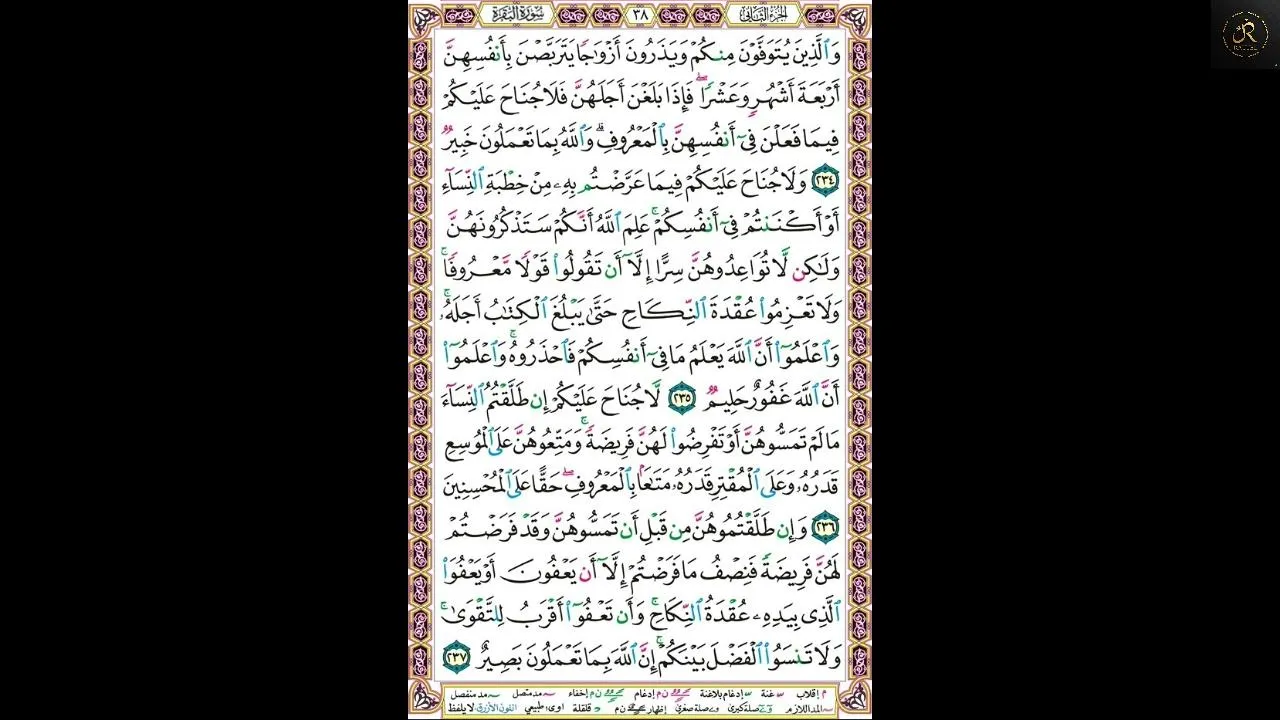 سُورَةُ البَقَرَةِ ٣٨ الجزء الثاني
وَٱلَّذِينَ يُتَوَفَّوْنَ مِنكُمْ وَيَذَرُونَ أَزْوَٰجًا يَتَرَبَّصْنَ بِأَنفُسِهِنَّ
أَرْبَعَةَ أَشْهُرٍ وَعَشْرًا ۖ فَإِذَا بَلَغْنَ أَجَلَهُنَّ فَلَا جُنَاحَ عَلَيْكُمْ
فِيمَا فَعَلْنَ فِىٓ أَنفُسِهِنَّ بِٱلْمَعْرُوفِ ۗ وَٱللَّهُ بِمَا تَعْمَلُونَ خَبِيرٌ
٢٣٤ وَلَا جُنَاحَ عَلَيْكُمْ فِيمَا عَرَّضْتُم بِهِۦ مِنْ خِطْبَةِ ٱلنِّسَآءِ
أَوْ أَكْنَنتُمْ فِىٓ أَنفُسِكُمْ ۚ عَلِمَ ٱللَّهُ أَنَّكُمْ سَتَذْكُرُونَهُنَّ
وَلَٰكِن لَّا تُوَاعِدُوهُنَّ سِرًّا إِلَّآ أَن تَقُولُوا۟ قَوْلًا مَّعْرُوفًا ۚ
وَلَا تَعْزِمُوا۟ عُقْدَةَ ٱلنِّكَاحِ حَتَّىٰ يَبْلُغَ ٱلْكِتَٰبُ أَجَلَهُۥ ۚ
وَٱعْلَمُوٓا۟ أَنَّ ٱللَّهَ يَعْلَمُ مَا فِىٓ أَنفُسِكُمْ فَٱحْذَرُوهُ ۚ وَٱعْلَمُوٓا۟
أَنَّ ٱللَّهَ غَفُورٌ حَلِيمٌ ٢٣٥ لَّا جُنَاحَ عَلَيْكُمْ إِن طَلَّقْتُمُ ٱلنِّسَآءَ
مَا لَمْ تَمَسُّوهُنَّ أَوْ تَفْرِضُوا۟ لَهُنَّ فَرِيضَةً ۚ وَمَتِّعُوهُنَّ عَلَى ٱلْمُوسِعِ
قَدَرُهُۥ وَعَلَى ٱلْمُقْتِرِ قَدَرُهُۥ مَتَٰعًۢا بِٱلْمَعْرُوفِ ۖ حَقًّا عَلَى ٱلْمُحْسِنِينَ
٢٣٦ وَإِن طَلَّقْتُمُوهُنَّ مِن قَبْلِ أَن تَمَسُّوهُنَّ وَقَدْ فَرَضْتُمْ
لَهُنَّ فَرِيضَةً فَنِصْفُ مَا فَرَضْتُمْ إِلَّآ أَن يَعْفُونَ أَوْ يَعْفُوَا۟
ٱلَّذِى بِيَدِهِۦ عُقْدَةُ ٱلنِّكَاحِ ۚ وَأَن تَعْفُوٓا۟ أَقْرَبُ لِلتَّقْوَىٰ ۚ
وَلَا تَنسَوُا۟ ٱلْفَضْلَ بَيْنَكُمْ ۚ إِنَّ ٱللَّهَ بِمَا تَعْمَلُونَ بَصِيرٌ ٢٣٧
م إقلاب غنة إدغام بلاغنة ن م إدغام ن م إخفاء مد متصل مد منفصل
المد اللازم صلة كبرى صلة صغرى إظهار ن م قلقلة اوى: طبيعي اللون الأزرق لا يلفظ